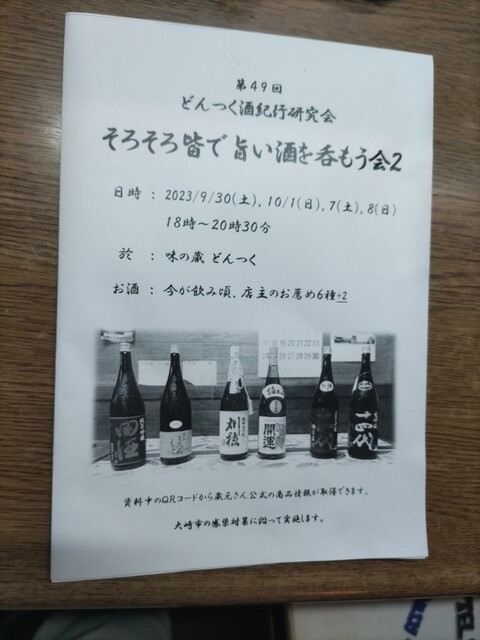 第49回
どんつく酒紀行研究会
そろそろ皆で旨い酒を呑もう会2
日時 : 2023/9/30(土), 10/1(日), 7(土), 8(日)
18時～20時30分
於 : 味の蔵 どんつく
お酒 : 今が飲み頃、店主のお薦め6種+2
田酒
刈穂
開運
十四代
資料中のQRコードから蔵元さん公式の商品情報が取得できます。
大崎市の感染対策に沿って実施します。